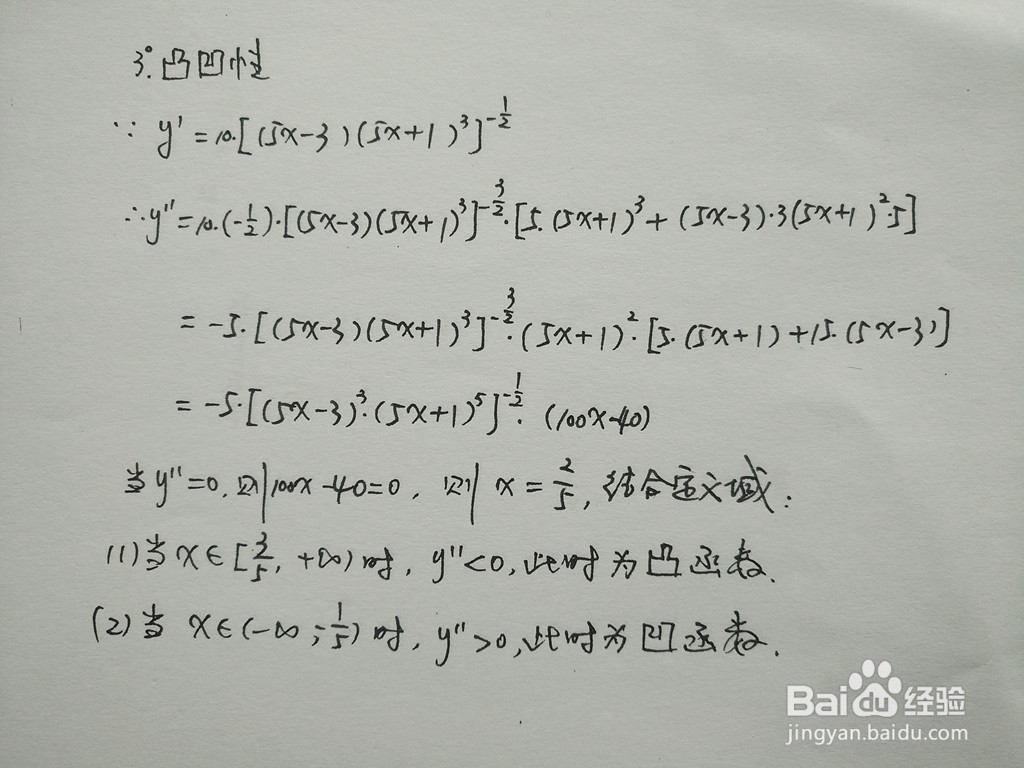 3°. 凸凹性
∵ y' = 10·[(5x-3)(5x+1)³]^{-1/2}
∴ y'' = 10·(-1/2)·[(5x-3)(5x+1)³]^{-3/2}·[5·(5x+1)³+(5x-3)·3(5x+1)²·5]
= -5·[(5x-3)(5x+1)³]^{-3/2}·(5x+1)²·[5·(5x+1)+15·(5x-3)]
= -5·[(5x-3)³·(5x+1)⁵]^{-1/2}·(100x-40)
当y''=0,则100x-40=0,则x=2/5,结合定义域:
(1)当x∈[3/5,+∞)时,y''<0,此时为凸函数.
(2)当x∈(-∞,-1/5)时,y''>0,此时为凹函数.
Baidu经验
jingyan.baidu.com